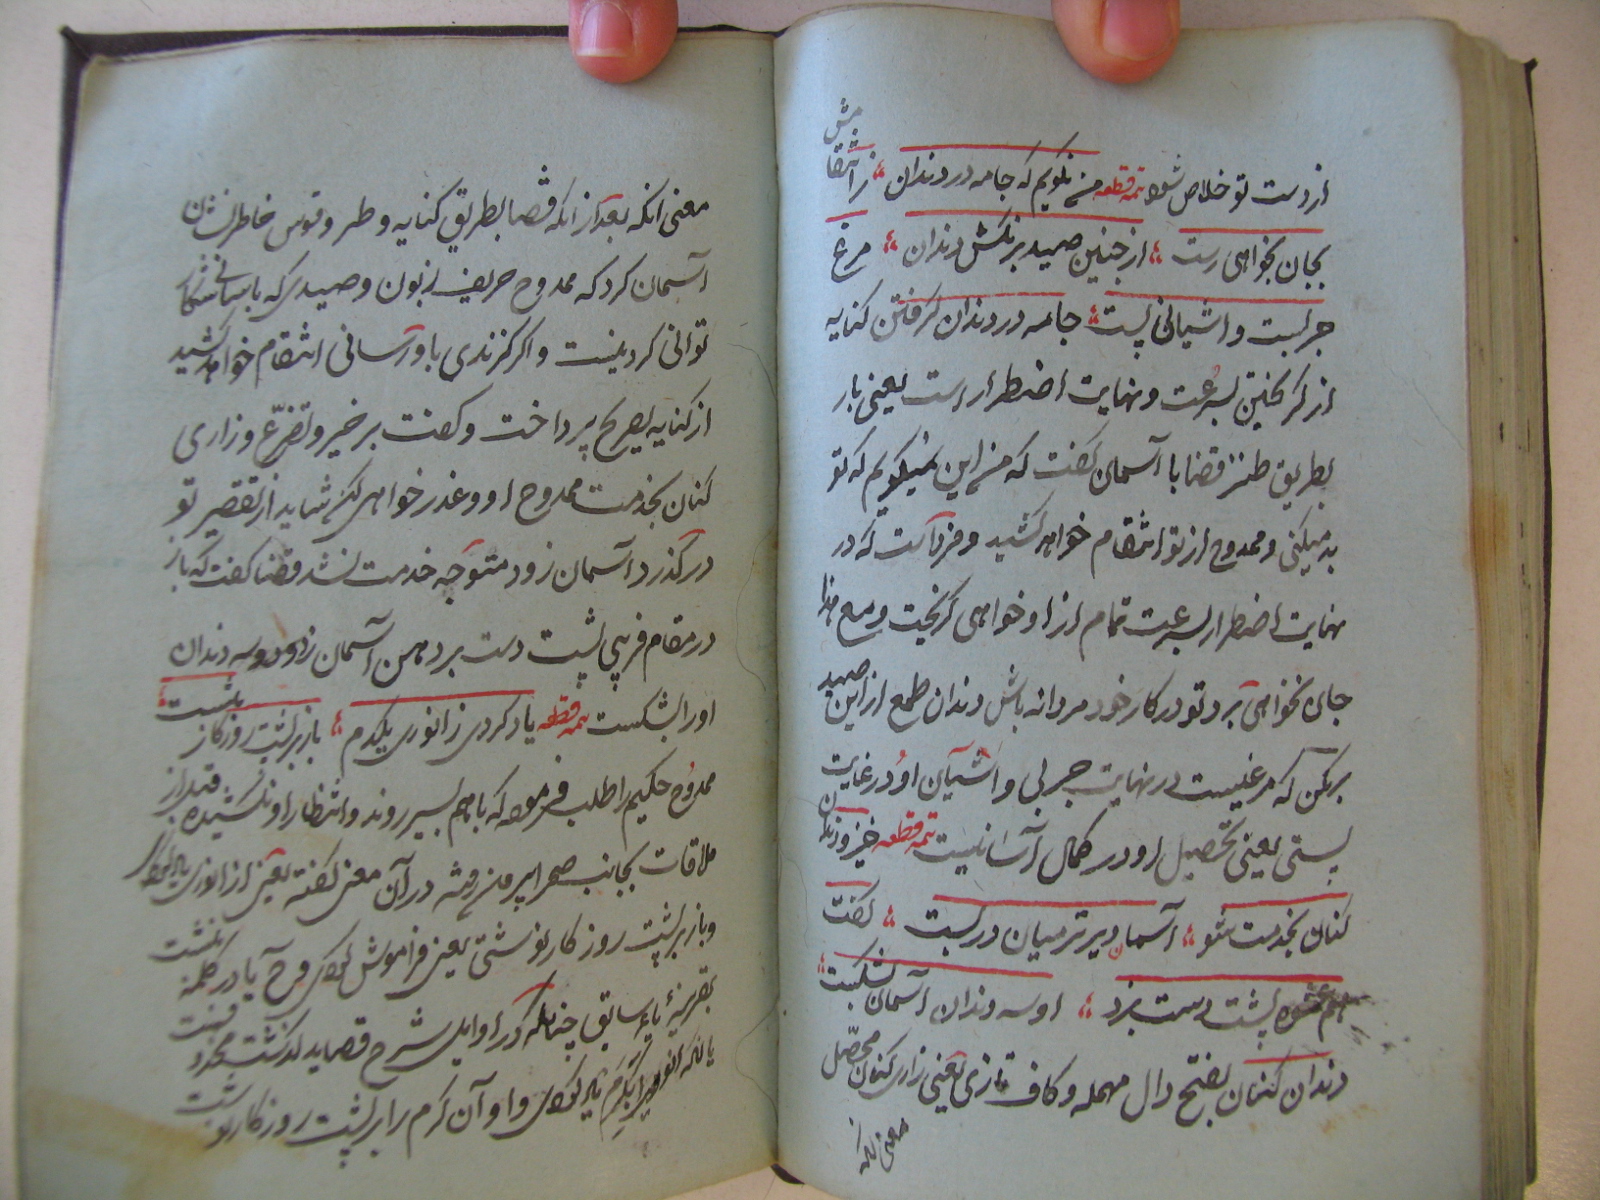 از دست تو خلاص شود تتمه قطعه من نگویم که جامه در دندان ؛ ز انتقامش
بجان نخواهی رست ؛ از چنین صید برنکش دندان ؛ مرغ
چربست و آشیانی پست ؛ جامه در دندان گرفتن کنایه
از گریختن بسرعت و نهایت اضطرار است یعنی بار
بطریق طنز قضا با آسمان گفت که من این نمیگویم که تو
بد میکنی و ممدوح از تو انتقام خواهد کشید و فردا است که در
نهایت اضطرار بسرعت تمام از او خواهی گریخت و مع هذا
جان نخواهی برد تو در کار خود مردانه باش دندان طمع از این صید
برمکن که مرغیست در نهایت چربی و آشیان او در غایت
پستی یعنی تحصیل او در کمال آسانیست تتمه قطعه خیز و دندان
کنان بخدمت شو ؛ آسمان دیرتر میان در بست ؛ گفت
هم پشت دست بزد ؛ او سه دندان آسمان بشکست ؛
دندان کنان بفتح دال مهمله و کاف تازی یعنی زاری کنان محصل
معنی آنکه
معنی آنکه بعد از آنکه قضا بطریق کنایه و طنز و خاطر نشان
آسمان کرد که ممدوح حریف زبون و صیدی که بآسانی شکار
توانی کرد نیست و اگر گزندی باو رسانی انتقام خواهد کشید
از کنایه بصریح پرداخت و گفت برخیز و تضرع و زاری
کنان بخدمت ممدوح او و عذر خواهی کن شاید از تقصیر تو
در گذرد آسمان زود متوجه خدمت نشد قضا گفت که باز
در مقام فریبی پشت دست بر دهن آسمان زد و دو سه دندان
او را بشکست تتمه قطعه یاد کردی ز انوری یکدم ؛ باز بر پشت روزگار بشست ؛
ممدوح حکیم را طلب فرموده که باهم بسیر روند و انتظار او نکشیده قبل از
ملاقات بجانب صحرا در آن معنی گفته یعنی از انوری یاد
و باز بر پشت روزگار نوشتی یعنی فراموش کردی و حرف یا در کلمه
بقرینهٔ سابق چنانکه در اوایل شرح قصاید گذشت مجرد
یا آنکه انوری را بکرم یاد کردی و او آن کرم را بر پشت روزگار